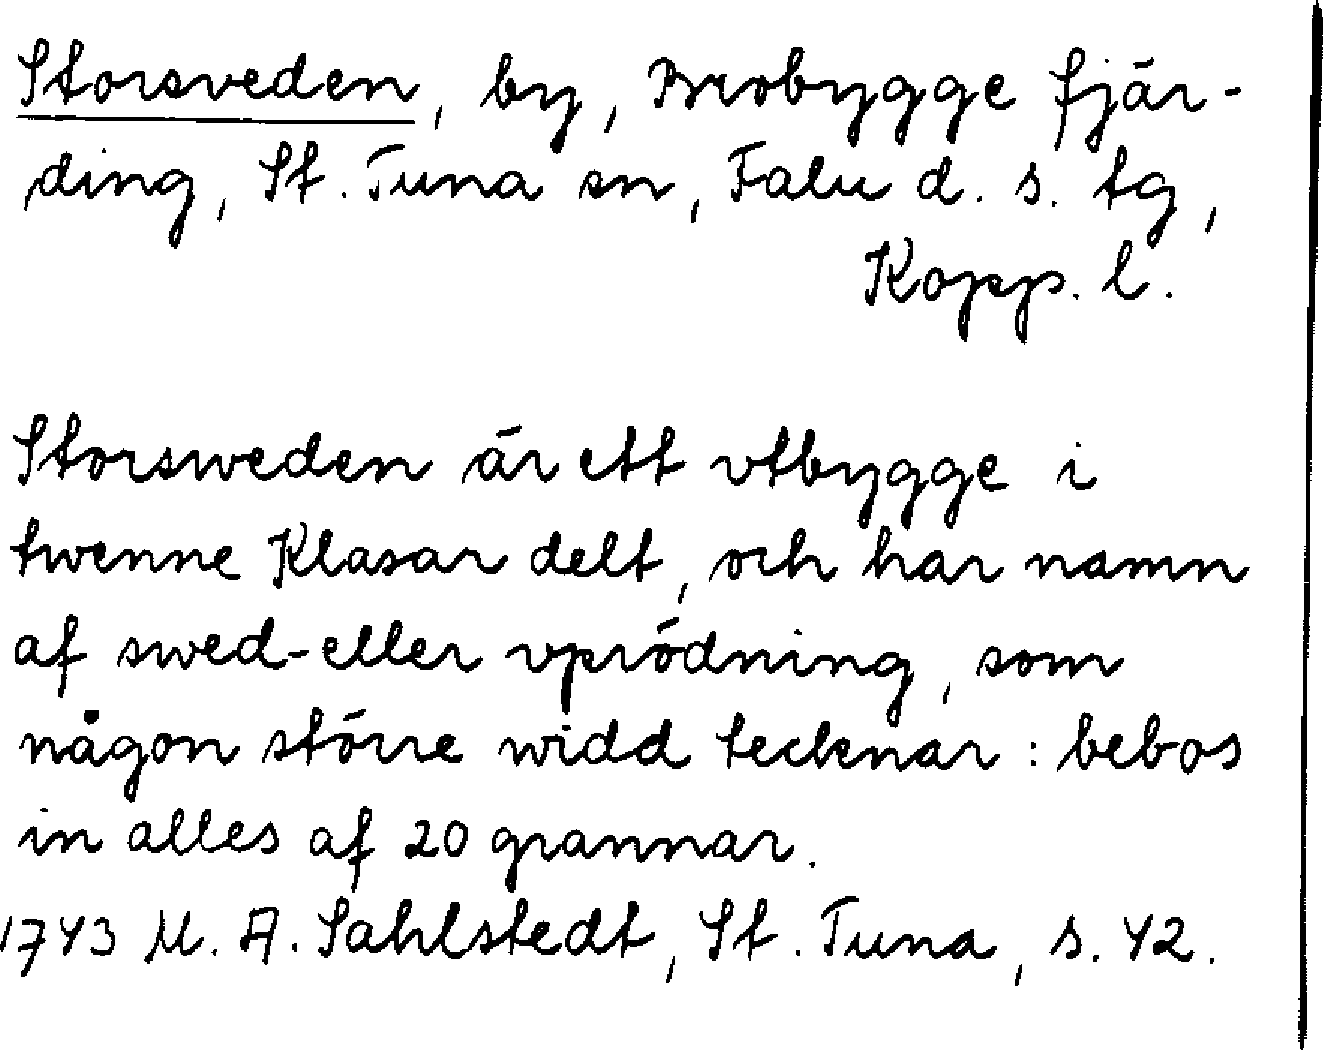 Storsveden, by, Brobygge fjär-
ding, St. Tuna sn, Falu d. s. tg,
Kopp. l.
Storsweden är ett vtbygge i
twenne Klasar delt, och har namn
af swed-eller vprödning, som
någon större widd tecknar: bebos
in alles af 20 grannar.
1743 M. A. Sahlstedt, St. Tuna, s. 42.